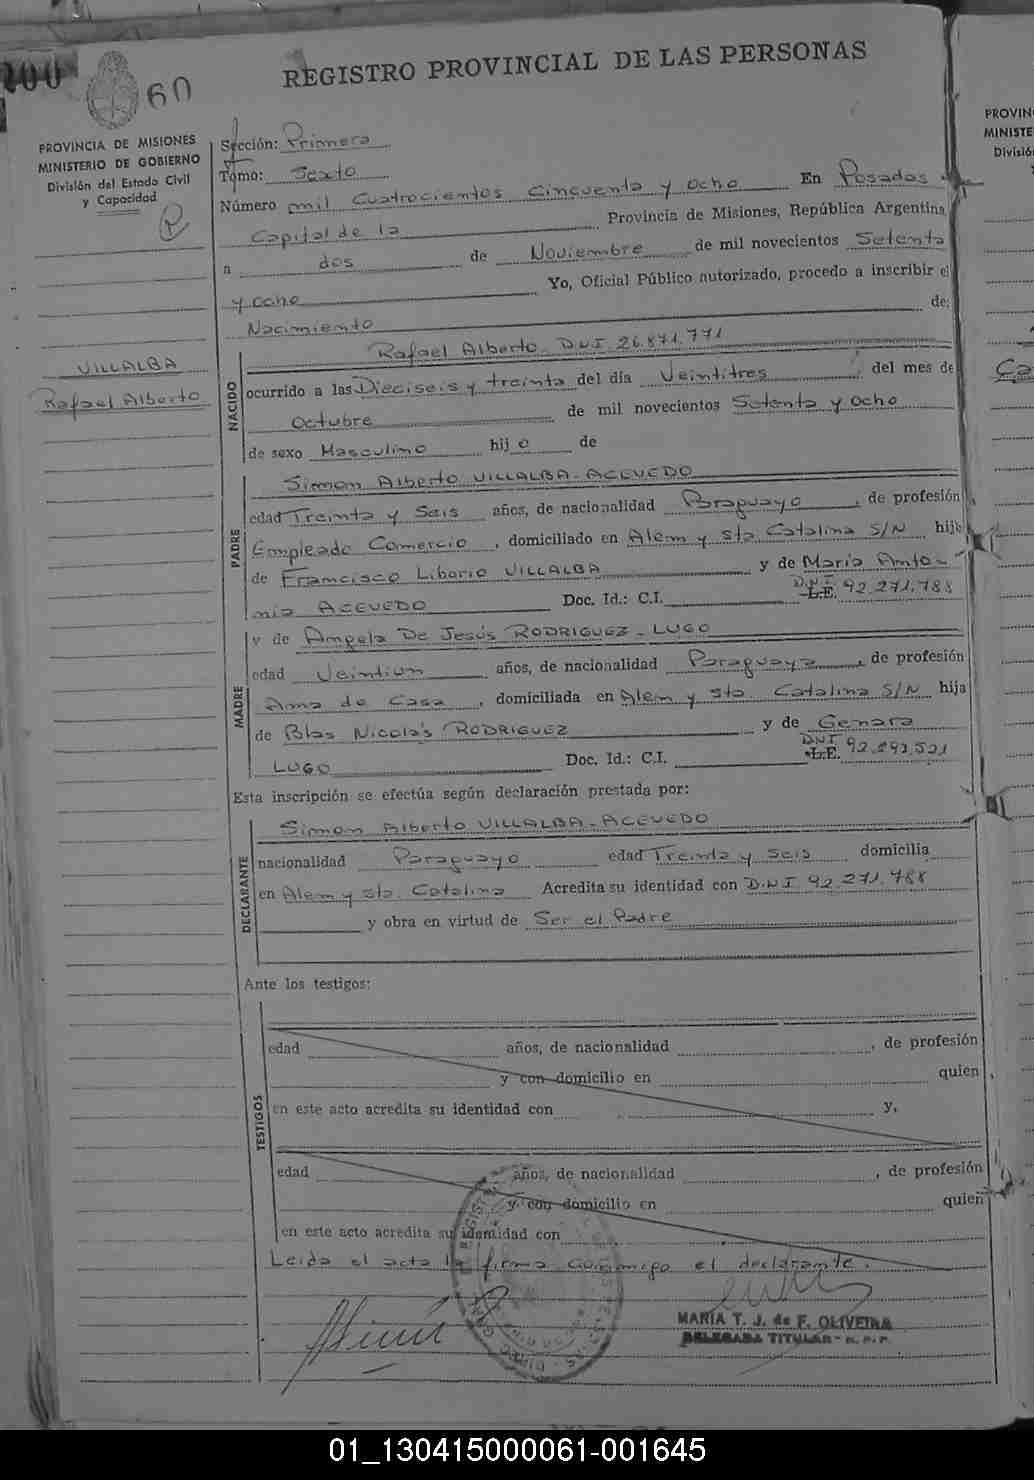 REGISTRO PROVINCIAL DE LAS PERSONAS
60
PROVINCIA DE MISIONES
MINISTERIO DE GOBIERNO
División del Estado Civil
y Capacidad
VILLALBA
Rafael Alberto
Sección: Primera
Tomo: Sexto
Número mil Cuatrocientos Cincuenta y ocho En Posadas
Capital de la Provincia de Misiones, República Argentina,
a dos de Noviembre de mil novecientos Setenta
y ocho Yo, Oficial Público autorizado, procedo a inscribir el
Nacimiento de:
NACIDO
Rafael Alberto D.N.I. 26.871.771
ocurrido a las Dieciseis y treinta del día Veintitres del mes de
Octubre de mil novecientos Setenta y ocho
de sexo Masculino hijo de
PADRE
Simon Alberto VILLALBA-ACEVEDO
edad Treinta y Seis años, de nacionalidad Paraguayo, de profesión
Empleado Comercio, domiciliado en Alem y sta Catalina S/N hijo
de Francisco Liborio VILLALBA y de María Anto-
nia ACEVEDO Doc. Id.: C.I. L.E. D.N.I. 92.271.788
MADRE
y de Angela De Jesús RODRIGUEZ-LUGO
edad Veintiun años, de nacionalidad Paraguaya, de profesión
Ama de Casa, domiciliada en Alem y sta. Catalina S/N hija
de Blas Nicolás RODRIGUEZ y de Genara
LUGO Doc. Id.: C.I. L.E. DNI 92.293.521
Esta inscripción se efectúa según declaración prestada por:
DECLARANTE
Simon Alberto VILLALBA-ACEVEDO
nacionalidad Paraguayo edad Treinta y seis domicilia
en Alem y sta. Catalina Acredita su identidad con D.N.I 92.271.788
y obra en virtud de Ser el Padre
Ante los testigos:
TESTIGOS
edad años, de nacionalidad , de profesión
y con domicilio en quien
en este acto acredita su identidad con y,
edad años, de nacionalidad , de profesión
y con domicilio en quien
en este acto acredita su identidad con
Leida el acta la firma conmigo el declarante.
MARIA T. J. de F. OLIVEIRA
DELEGADA TITULAR - R. P. P.
PROVIN
MINISTE
Divisió
01_130415000061-001645